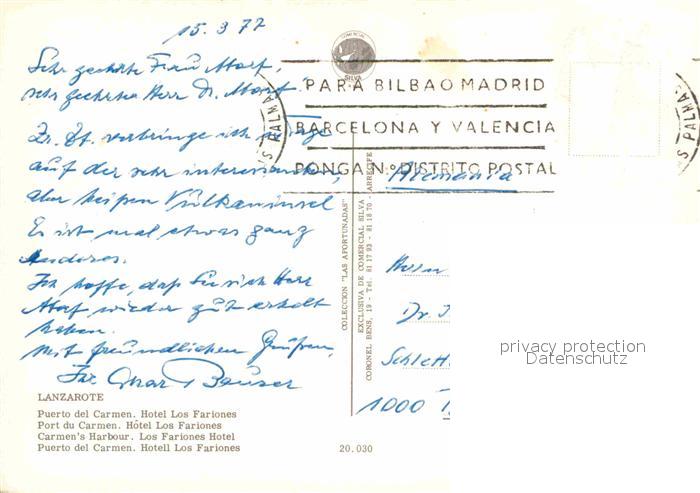 15. 3 77
Sehr geehrte Frau Morf,
sehr geehrter Herr Dr. Morf
Zr. Zt. verbringe ich
auf der sehr interessanten,
aber heißen Vulkaninsel
Es ist mal etwas ganz
Anderes.
Ich hoffe, daß Sie sich Herr
Morf wieder gut erholt
haben.
Mit freundlichen Grüßen,
Ihr
COMERCIAL
SILVA
PARA BILBAO MADRID
BARCELONA Y VALENCIA
PONGA N.º DISTRITO POSTAL
S PALMA
S PALMAS
Alemania
Herrn
Dr.
Schlett
1000
privacy protection
Datenschutz
COLECCION "LAS AFORTUNADAS"
EXCLUSIVA DE COMERCIAL SILVA
CORONEL BENS, 19 - Tels. 81 17 93 - 81 18 70 - ARRECIFE
LANZAROTE
Puerto del Carmen. Hotel Los Fariones
Port du Carmen. Hôtel Los Fariones
Carmen's Harbour. Los Fariones Hotel
Puerto del Carmen. Hotell Los Fariones
20.030